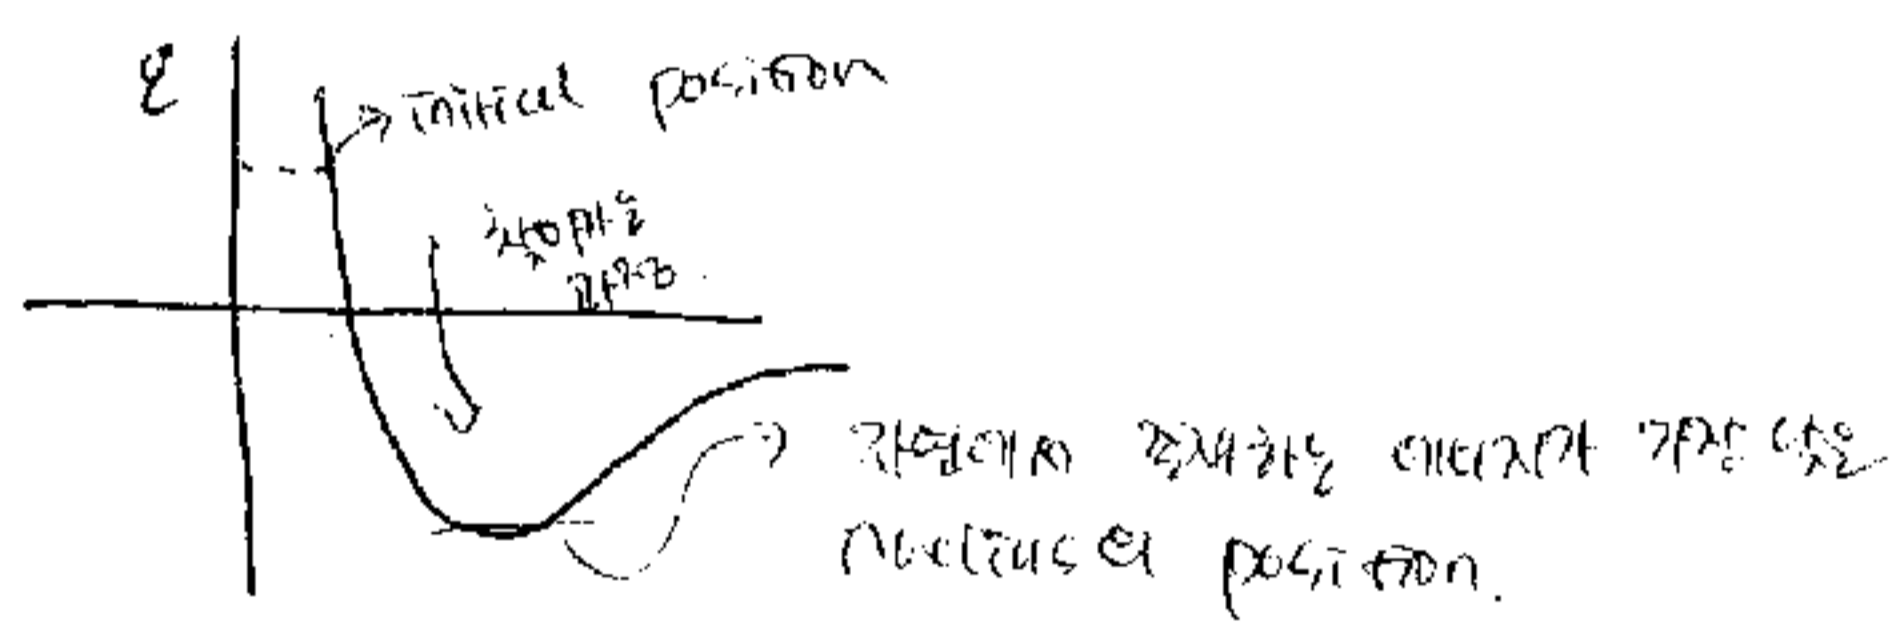 E
initial position
찾아가는
과정
자연에서 존재하는 에너지가 가장 낮은
nucleus의 position.